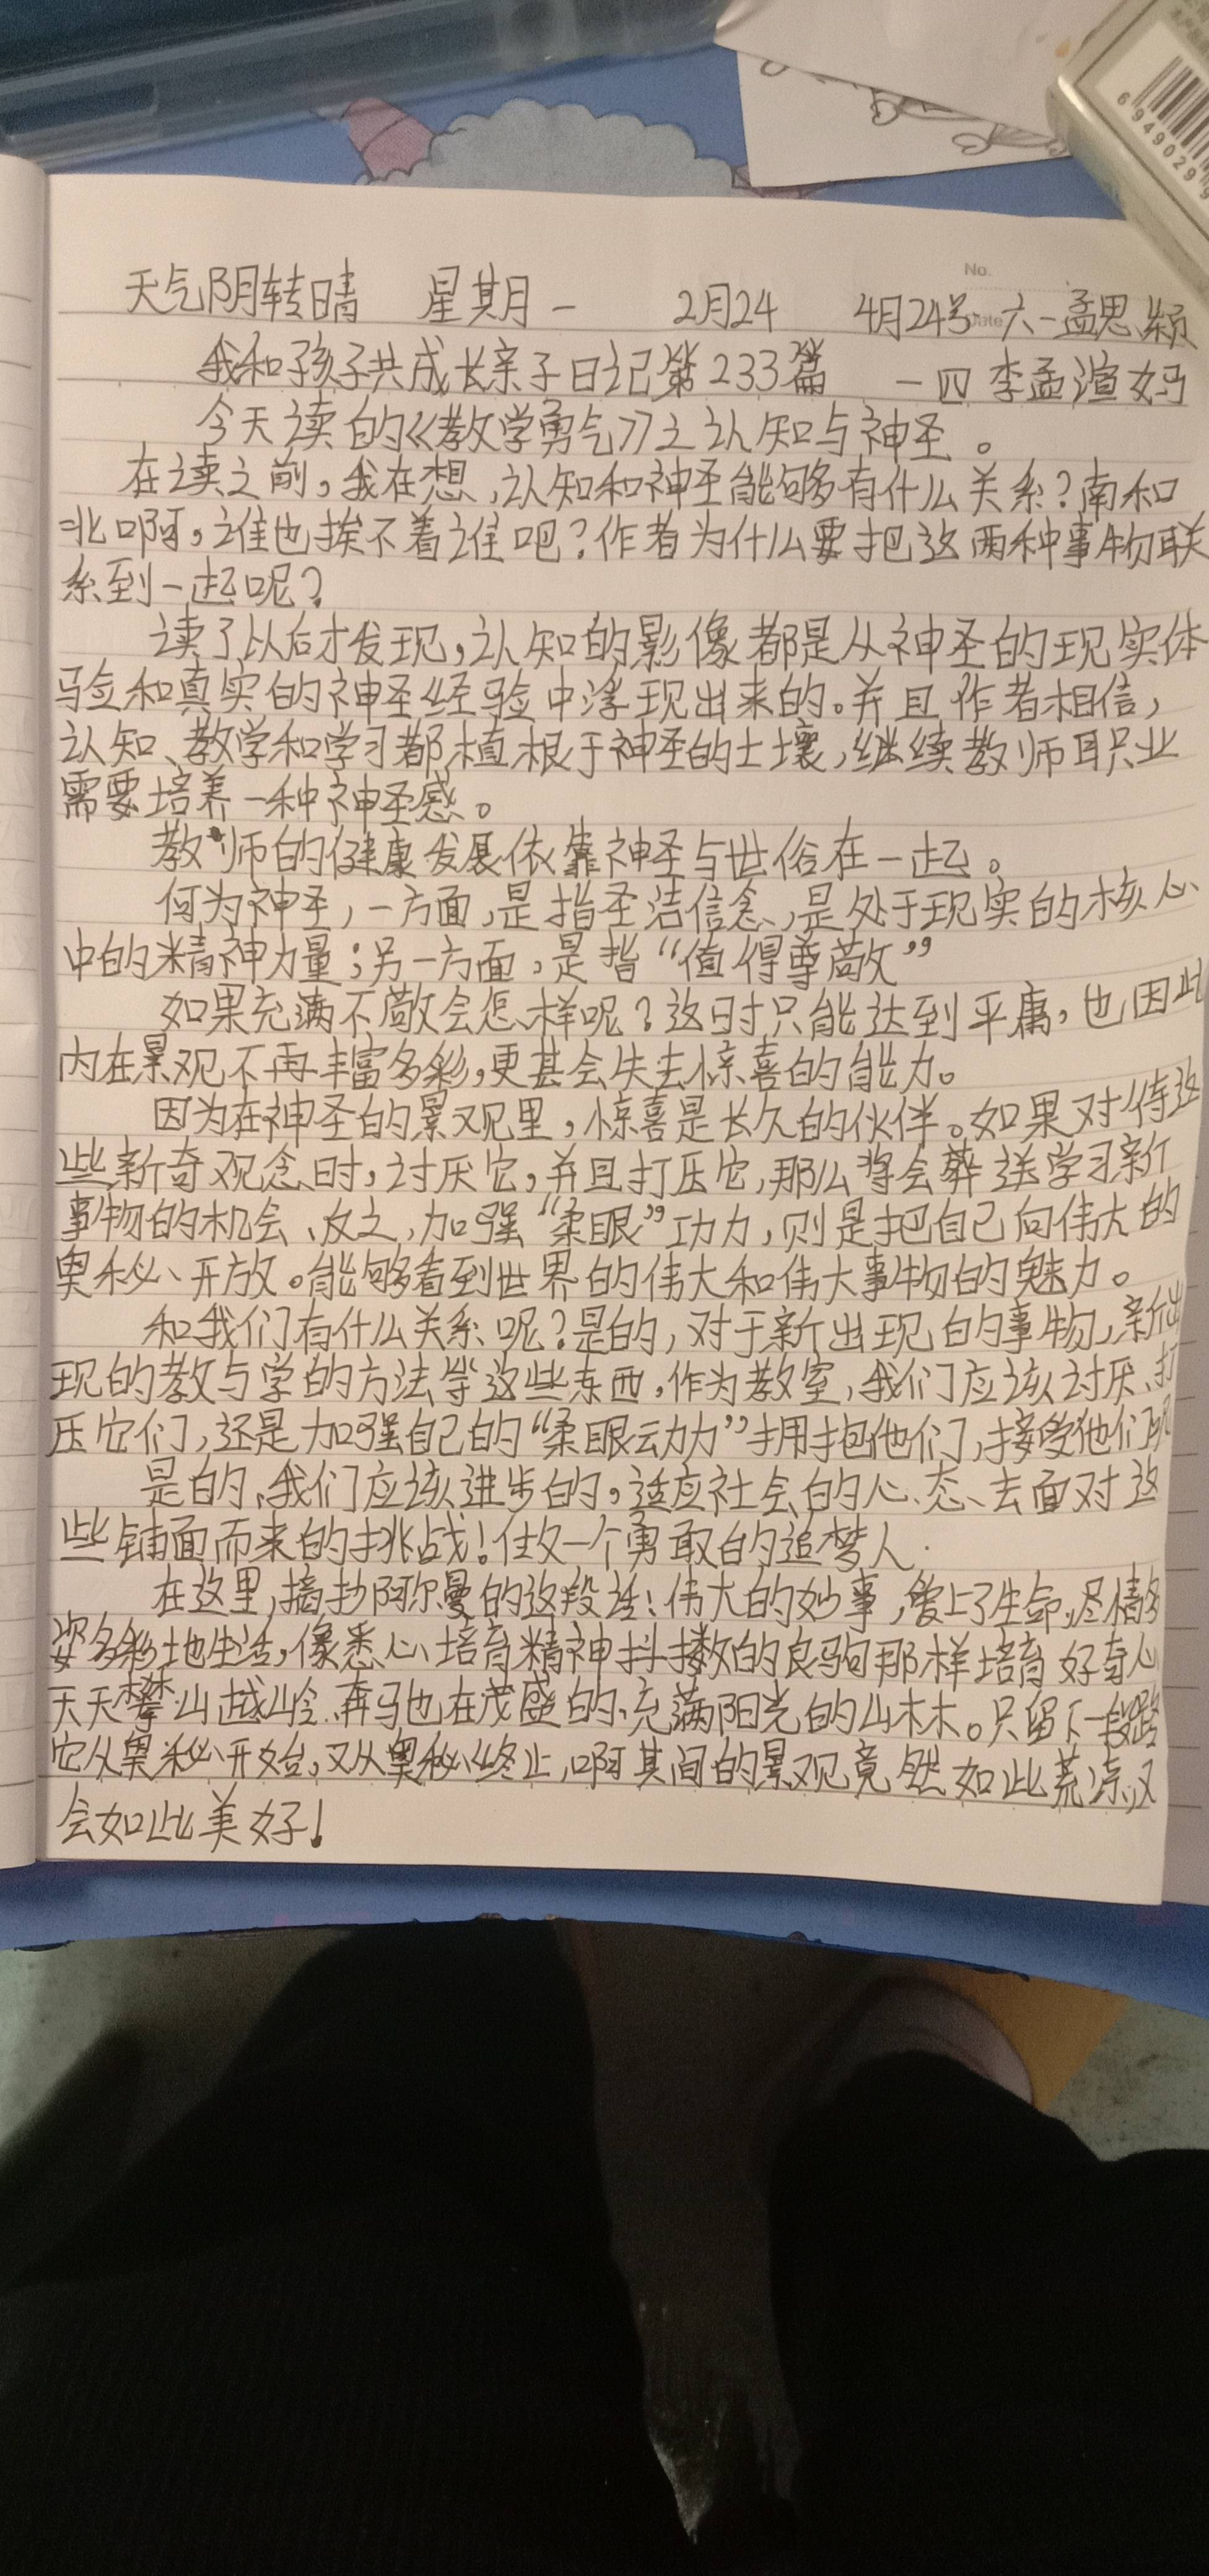 6 949029 9
No.
Date
天气阴转晴 星期一 2月24 4月24号 六一孟思颍
我和孩子共成长亲子日记第233篇 一四李孟渲妈
今天读的《教学勇气》之认知与神圣。
在读之前,我在想,认知和神圣能够有什么关系?南和
北啊,谁也挨不着谁吧?作者为什么要把这两种事物联
系到一起呢?
读了以后才发现,认知的影像都是从神圣的现实体
验和真实的神圣经验中浮现出来的。并且作者相信,
认知、教学和学习都植根于神圣的土壤,继续教师职业
需要培养一种神圣感。
教师的健康发展依靠神圣与世俗在一起。
何为神圣,一方面,是指圣洁信念,是处于现实的核心
中的精神力量;另一方面,是指“值得尊敬”
如果充满不敬会怎样呢?这时只能达到平庸,也因此
内在景观不再丰富多彩,更甚会失去惊喜的能力。
因为在神圣的景观里,惊喜是长久的伙伴。如果对待这
些新奇观念时,讨厌它,并且打压它,那么将会葬送学习新
事物的机会、反之,加强“柔眼”功力,则是把自己向伟大的
奥秘、开放。能够看到世界的伟大和伟大事物的魅力。
和我们有什么关系呢?是的,对于新出现的事物,新出
现的教与学的方法等这些东西,作为教室,我们应该讨厌、打
压它们,还是加强自己的“柔眼动力”拥抱他们,接受他们呢
是的,我们应该进步的,适应社会的心态、去面对这
些铺面而来的挑战!做一个勇敢的追梦人.
在这里,摘抄阿尔曼的这段话!伟大的妙事,爱上了生命,尽情多
姿多彩地生活,像悉心培育精神抖擞的良驹那样培育好奇心
天天攀山越岭.奔马也在茂盛的、充满阳光的山林。只留下一段路
它从奥秘开始,又从奥秘终止,啊其间的景观竟然如此荒凉又
会如此美好!